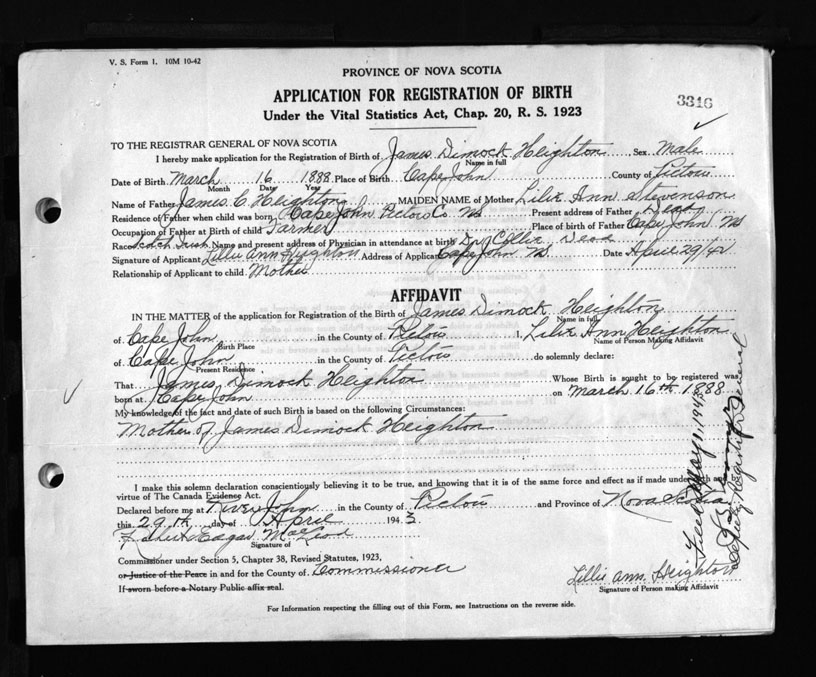 V. S. Form 1. 10M 10-42
PROVINCE OF NOVA SCOTIA
APPLICATION FOR REGISTRATION OF BIRTH
3316
Under the Vital Statistics Act, Chap. 20, R. S. 1923
TO THE REGISTRAR GENERAL OF NOVA SCOTIA
I hereby make application for the Registration of Birth of James Dimock Heighton, Sex Male
Name in full
Date of Birth March 16 1888 Place of Birth Cape John County of Pictou
Month Date Year
Name of Father James C. Heighton MAIDEN NAME of Mother Lilix Ann Stevenson
Residence of Father when child was born Cape John Pictou Co. NS Present address of Father Dead
Occupation of Father at Birth of child Farmer Place of Birth of Father Cape John NS
Race Scotch Irish Name and present address of Physician in attendance at birth Dr. Collix Dead
Signature of Applicant Lillie Ann Heighton Address of Applicant Cape John NS Date April 29/42
Relationship of Applicant to child Mother
AFFIDAVIT
IN THE MATTER of the application for Registration of the Birth of James Dimock Heighton
Name in full
of Cape John in the County of Pictou I, Lilix Ann Heighton
Birth Place Name of Person Making Affidavit
of Cape John in the County of Pictou do solemnly declare:
Present Residence
That James Dimock Heighton Whose Birth is sought to be registered was
born at Cape John on March 16th 1888
My knowledge of the fact and date of such Birth is based on the following Circumstances:
Mother of James Dimock Heighton
I make this solemn declaration conscientiously believing it to be true, and knowing that it is of the same force and effect as if made under oath and
virtue of The Canada Evidence Act.
Declared before me at River John in the County of Pictou and Province of Nova Scotia
this 29th day of April 1943
Edgar MacLeod
Signature of
Commissioner under Section 5, Chapter 38, Revised Statutes, 1923,
or Justice of the Peace in and for the County of Commissioner
If sworn before a Notary Public affix seal.
Lillie Ann. Heighton
Signature of Person making Affidavit
For Information respecting the filling out of this Form, see Instructions on the reverse side.
Filed May 1, 1943
Deputy Registrar General